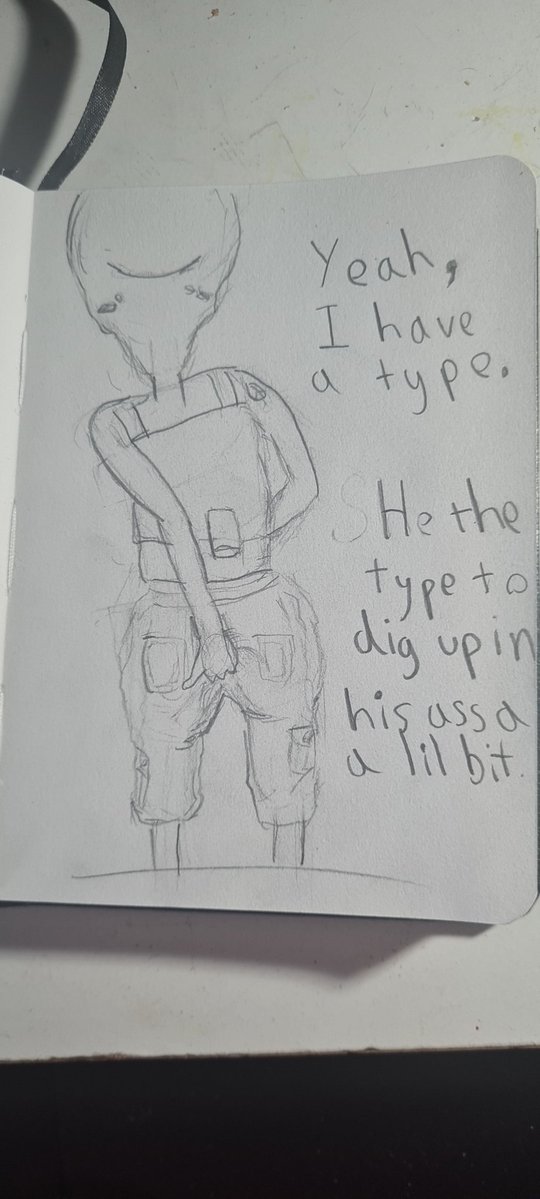 Yeah,
I have
a type.
SHe the
type to
dig up in
his ass a
a lil bit.